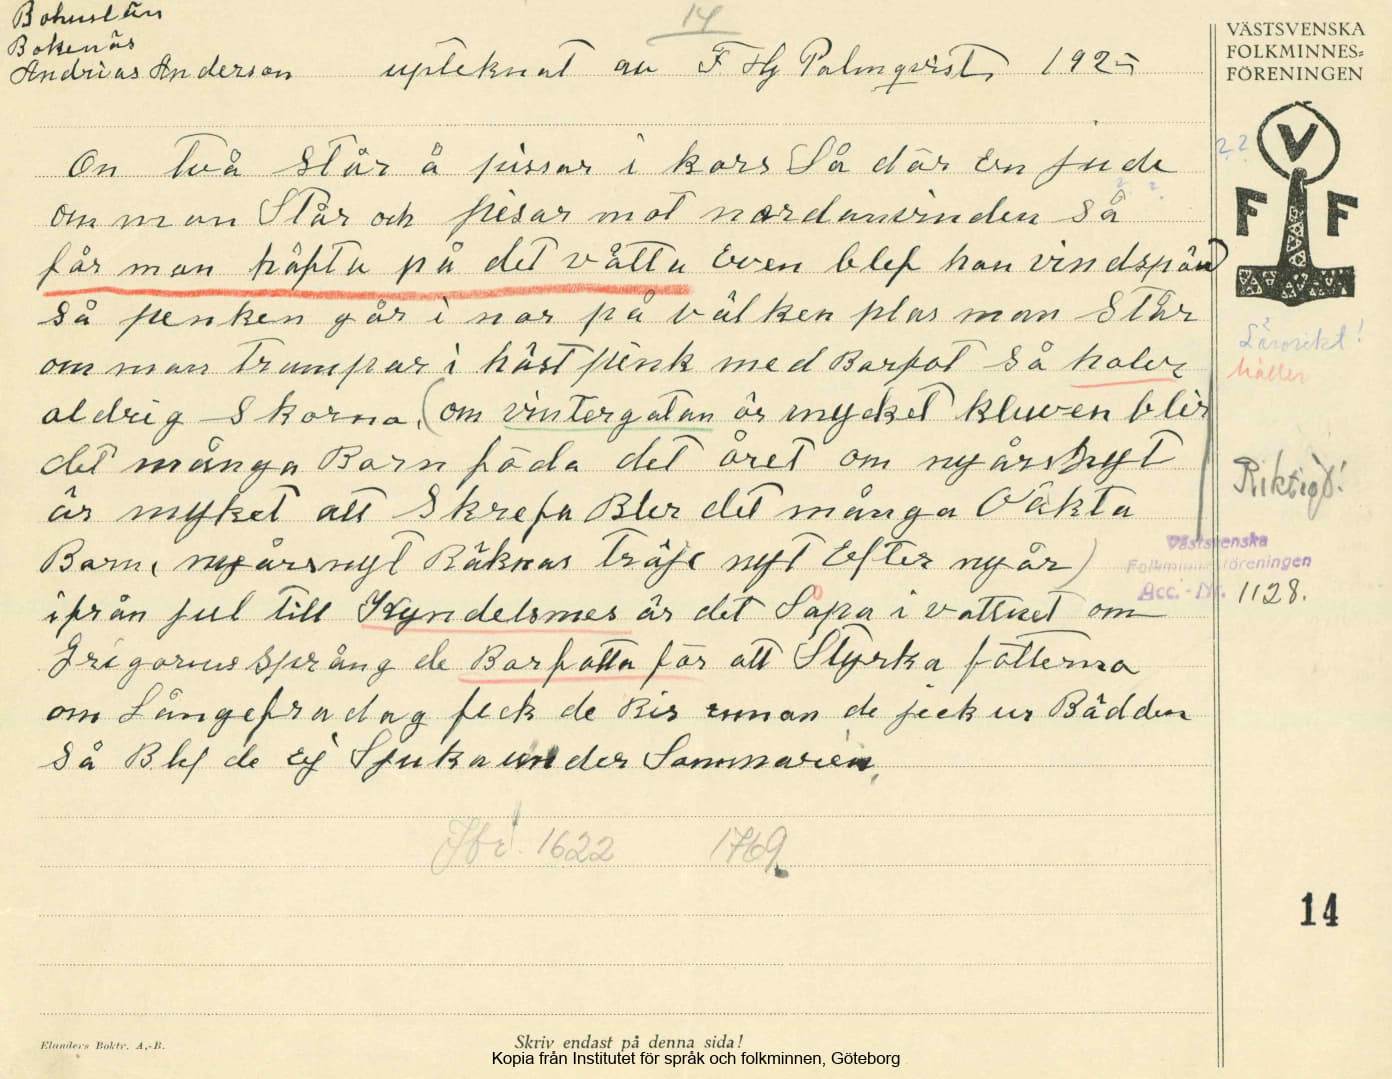 Bohuslän
Bokenäs
Andrias Anderson upteknat av F Hj Palmqvist, 1925
14
VÄSTSVENSKA
FOLKMINNES=
FÖRENINGEN
V
F F
On två står å pissar i kors Så där en jude
om man Står och pisar mot nordanvinden så
får man häfta på det våtta Even blef han vindspänd
så penken går i nar på välken plas man står
om man trampar i häst pink med Barfot så haler
aldrig Skorna, (om vintergatan är mycket kluven blir
det många Barn föda det året om nyårsnyt
är myket att Skrefa Bler det många Oäkta
Barn, nyårsnyt Räknas träje nyt Efter nyår)
ifrån jul till Kyndelsmes är det Sapa i vattnet om
Grigorius språng de Barfotta för att Styrka fötterna
om Långefradag feck de Ris innan de jeck ur Bädden
så Blef de ej Sjuka under Sommaren,
? ?
? ?
Lärorikt!
håller
Riktigt!
Västsvenska
Folkminnesföreningen
Acc.-Nr. 1128.
Jfr. 1622 1769
14
Elanders Boktr. A.-B.
Skriv endast på denna sida!
Kopia från Institutet för språk och folkminnen, Göteborg